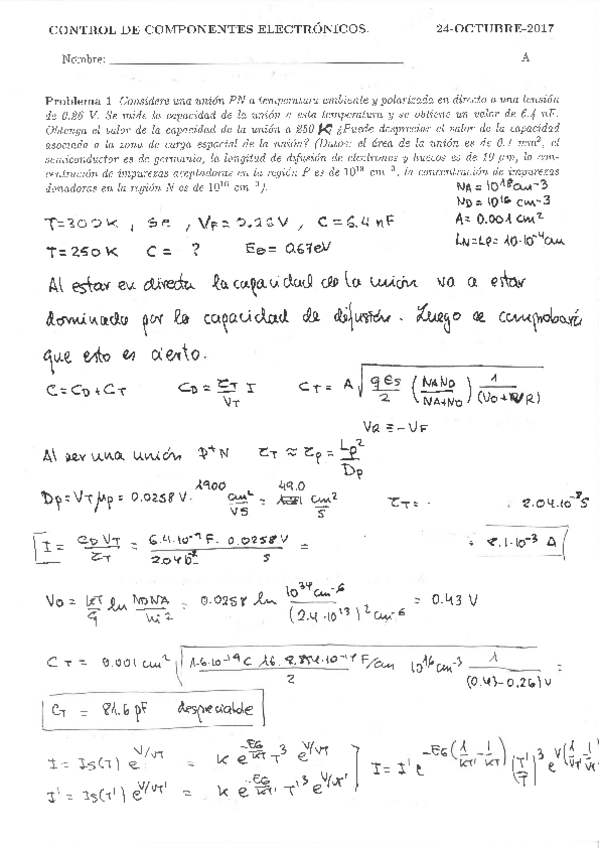 CONTROL DE COMPONENTES ELECTRÓNICOS. 24-OCTUBRE-2017
Nombre: A
Problema 1 Considere una unión PN a temperatura ambiente y polarizada en directo a una tensión
de 0.26 V. Se mide la capacidad de la unión a esta temperatura y se obtiene un valor de 6.4 nF.
Obtenga el valor de la capacidad de la unión a 250 K. ¿Puede despreciar el valor de la capacidad
asociada a la zona de carga espacial de la unión? (Datos: el área de la unión es de 0.1 mm², el
semiconductor es de germanio, la longitud de difusión de electrones y huecos es de 10 μm, la con-
centración de impurezas aceptadoras en la región P es de 10¹⁸ cm⁻³, la concentración de impurezas
donadoras en la región N es de 10¹⁶ cm⁻³).
NA = 10¹⁸ cm-3
ND = 10¹⁶ cm-3
T=300K, Ge, VF=0.26V, C=6.4nF A= 0.001 cm²
T=250K C= ? EG= 0.67eV LN=LP= 10·10⁻⁴cm
Al estar en directa la capacidad de la unión va a estar
dominada por la capacidad de difusión. Luego se comprobará
que esto es cierto.
C=CD+CT CD = τT/VT I CT = A √(qεs/2 (NAND/(NA+ND)) 1/(V0+VR))
VR = -VF
Al ser una unión P⁺N τT ≈ τp = Lp²/Dp
Dp=VTμp = 0.0258 V. 1900 cm²/VS = 49.0 cm²/S τT= 2.04·10⁻⁸S
I = CD VT/τT = 6.4·10⁻⁹F. 0.0258V / 2.04·10⁻⁸ s = = 8.1·10⁻³ A
V0 = kT/q ln NDNA/ni² = 0.0258 ln 10³⁴cm⁻⁶/(2.4·10¹³)²cm⁻⁶ = 0.43 V
CT = 0.001 cm² √(1.6·10⁻¹⁹C 16. 8.854·10⁻¹⁴F/cm / 2 10¹⁶cm⁻³ 1/(0.43-0.26)V) =
CT = 81.6 pF despreciable
I = Is(T) e^(V/VT) = K e^(-EG/kT) T³ e^(V/VT)
I' = Is(T') e^(V/VT') = K e^(-EG/kT') T'³ e^(V/VT') I = I' e^(-EG(1/kT - 1/kT')) (T/T')³ e^(V(1/VT - 1/VT'))